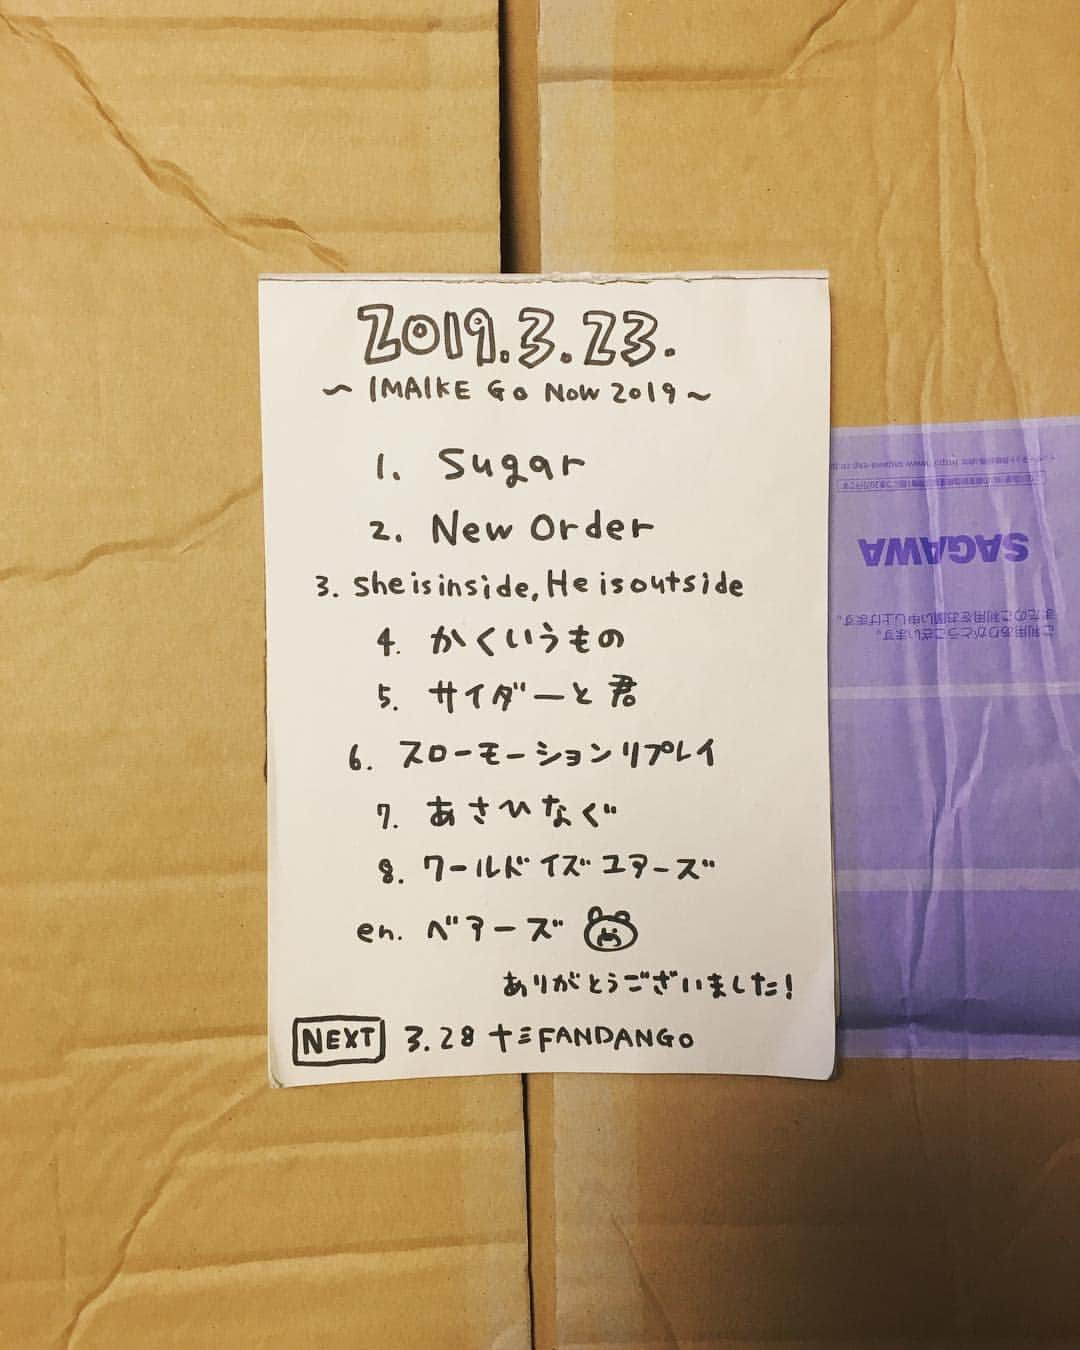 2019.3.23.
～IMAIKE GO NOW 2019～
1. Sugar
2. New Order
3. She is inside, He is outside
4. かくいうもの
5. サイダーと君
6. スローモーションリプレイ
7. あさひなぐ
8. ワールドイズユアーズ
en. ベアーズ
ありがとうございました!
NEXT 3.28 十三FANDANGO
SAGAWA
ご利用ありがとうございます。
またのご利用をお願い申し上げます。